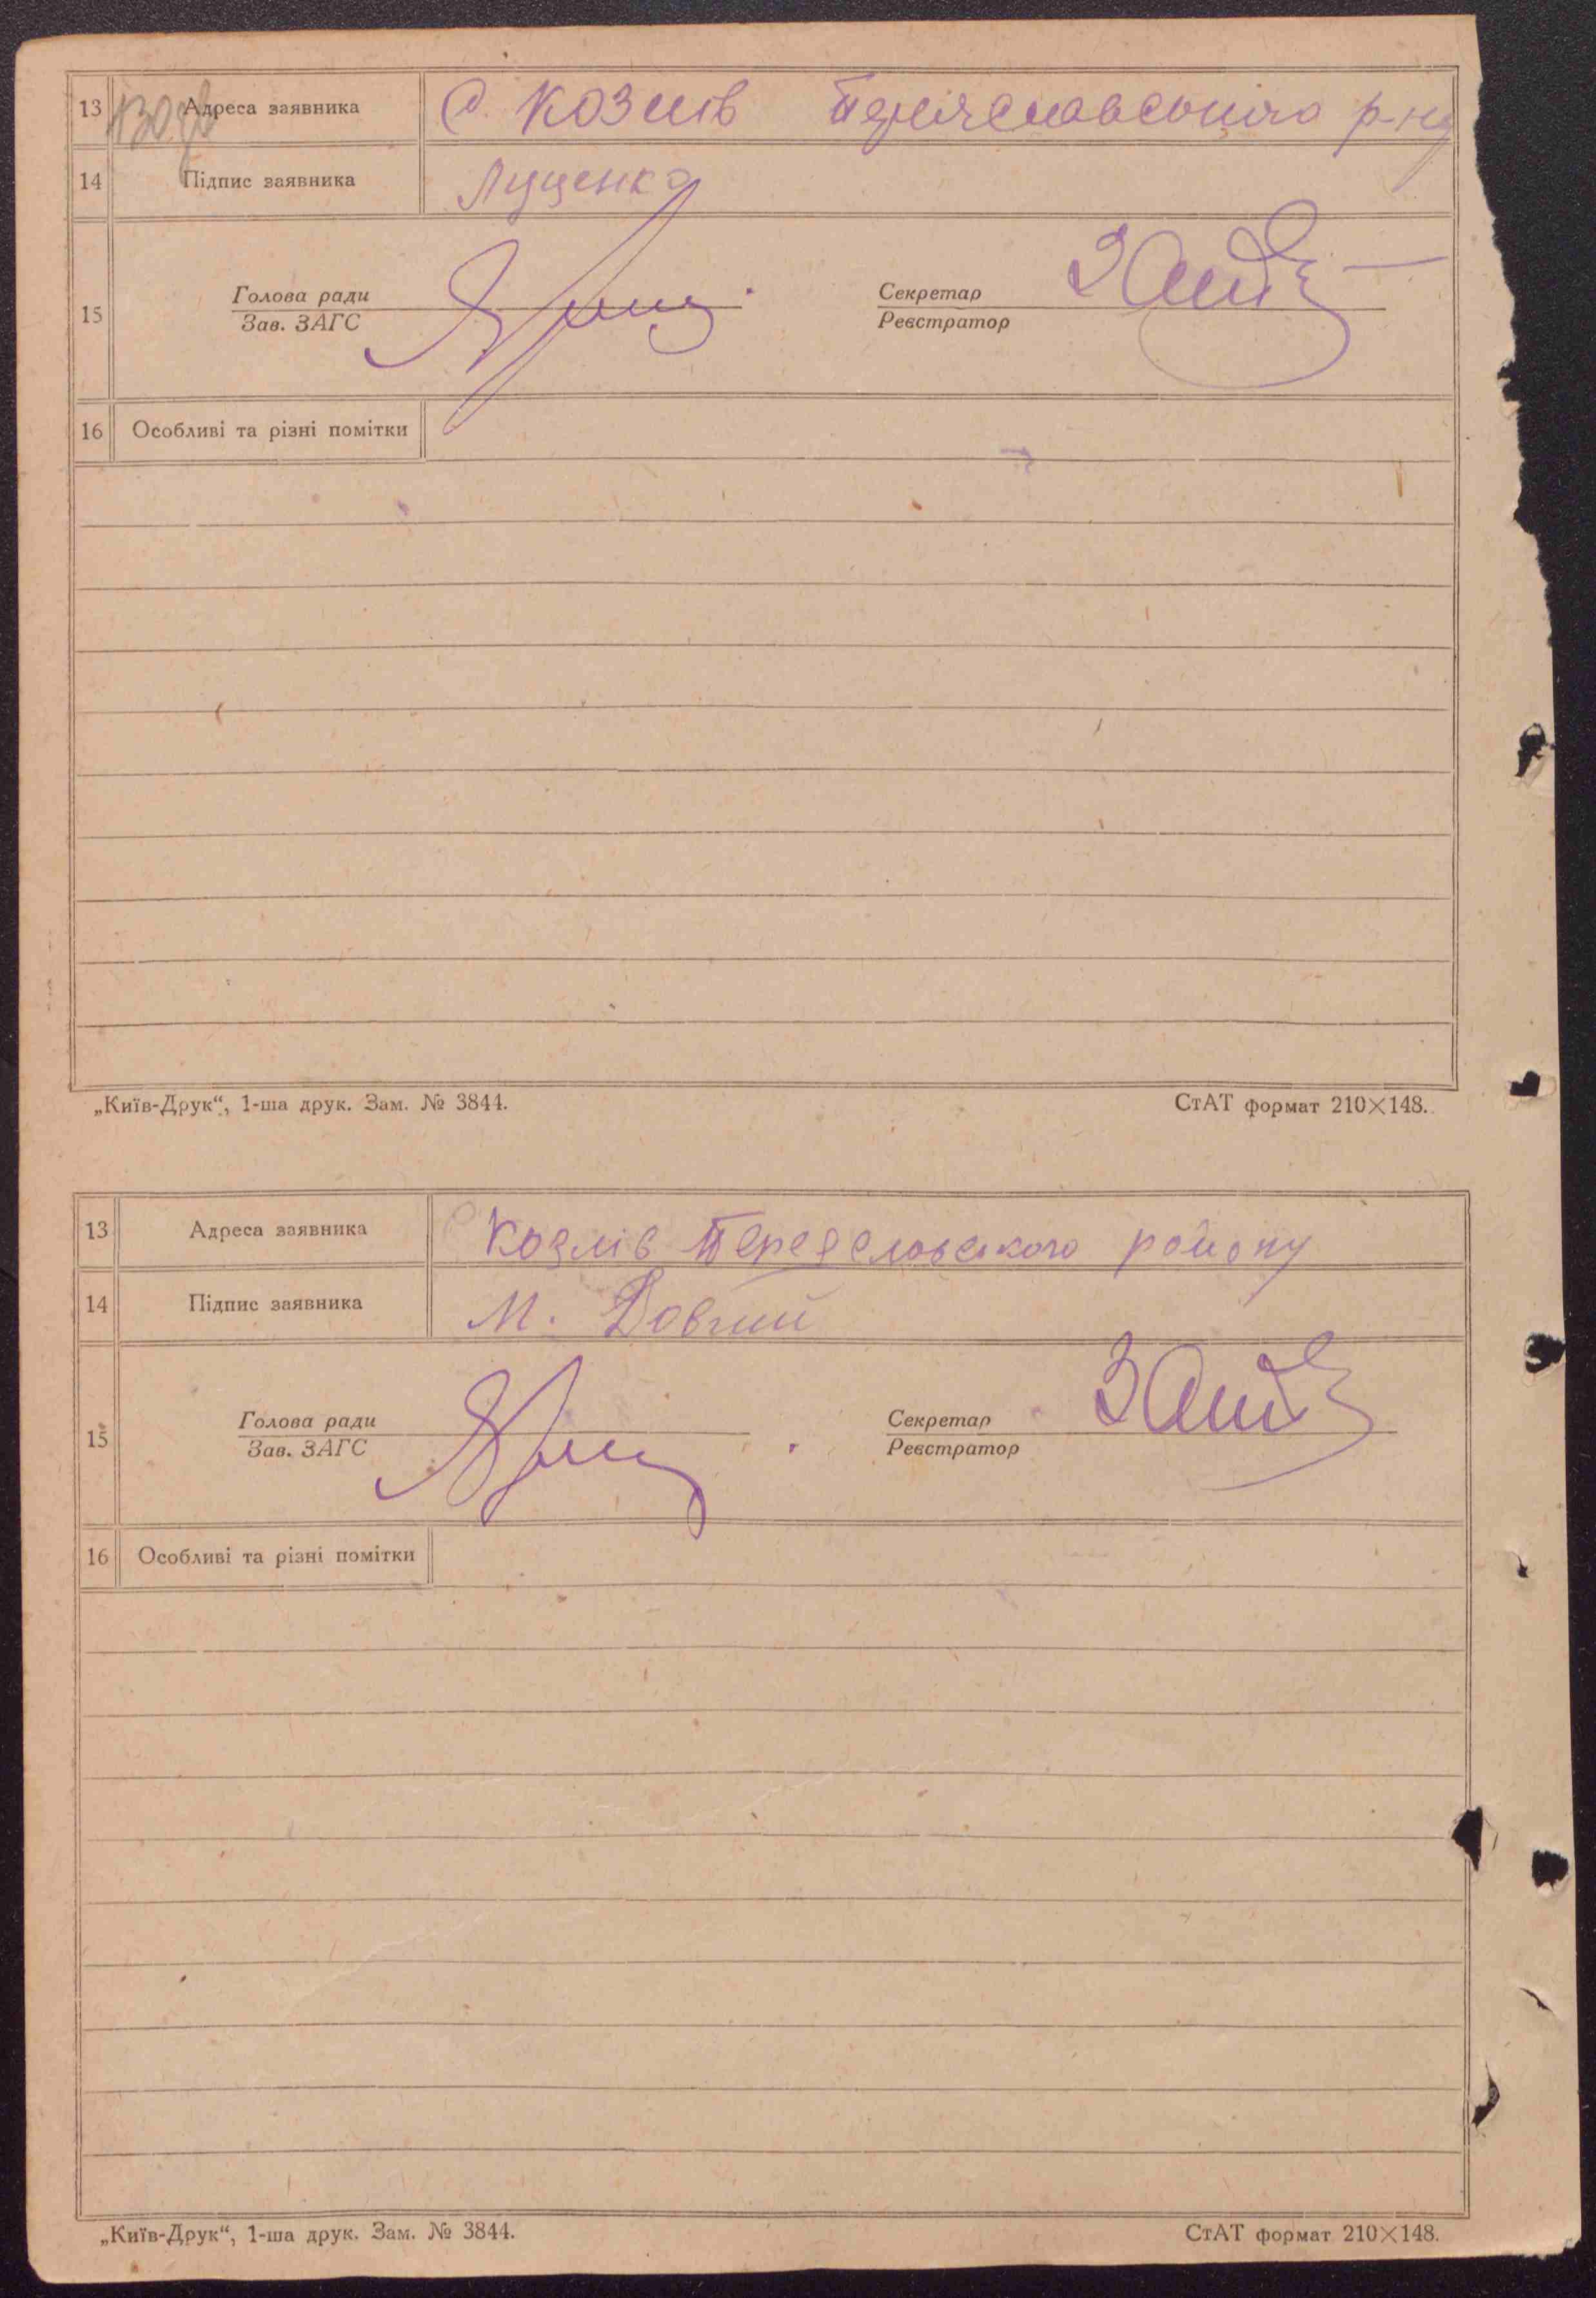 13 Адреса заявника С. Козлів Переяславського р-ну
14 Підпис заявника Луценко
15 Голова ради Секретар
Зав. ЗАГС Реєстратор
16 Особливі та різні помітки
„Київ-Друк“, 1-ша друк. Зам. № 3844. СтАТ формат 210×148.
13 Адреса заявника Козлів Переясловского району
14 Підпис заявника М. Довгий
15 Голова ради Секретар
Зав. ЗАГС Реєстратор
16 Особливі та різні помітки
„Київ-Друк“, 1-ша друк. Зам. № 3844. СтАТ формат 210×148.